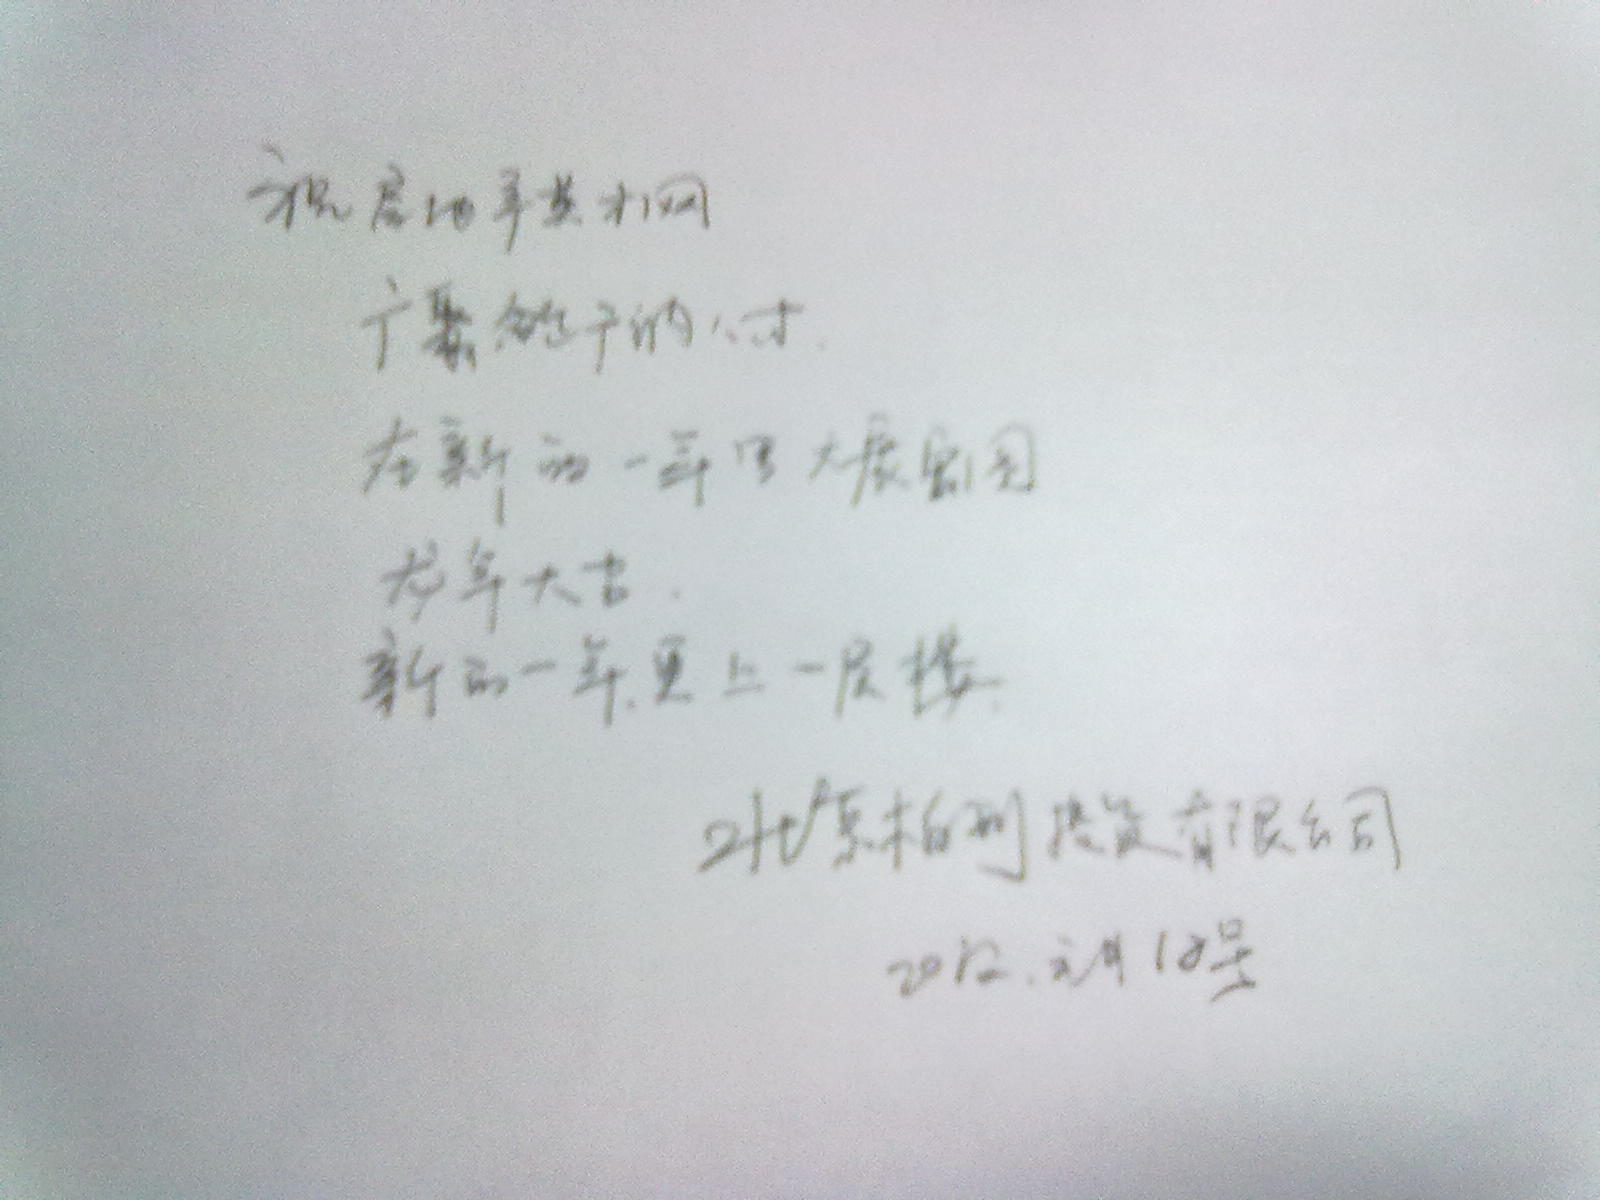 祝房地产英才网
广聚能干的人才.
在新的一年里大展宏图
龙年大吉.
新的一年.更上一层楼.
北京柏利投资有限公司
2012.元月18号